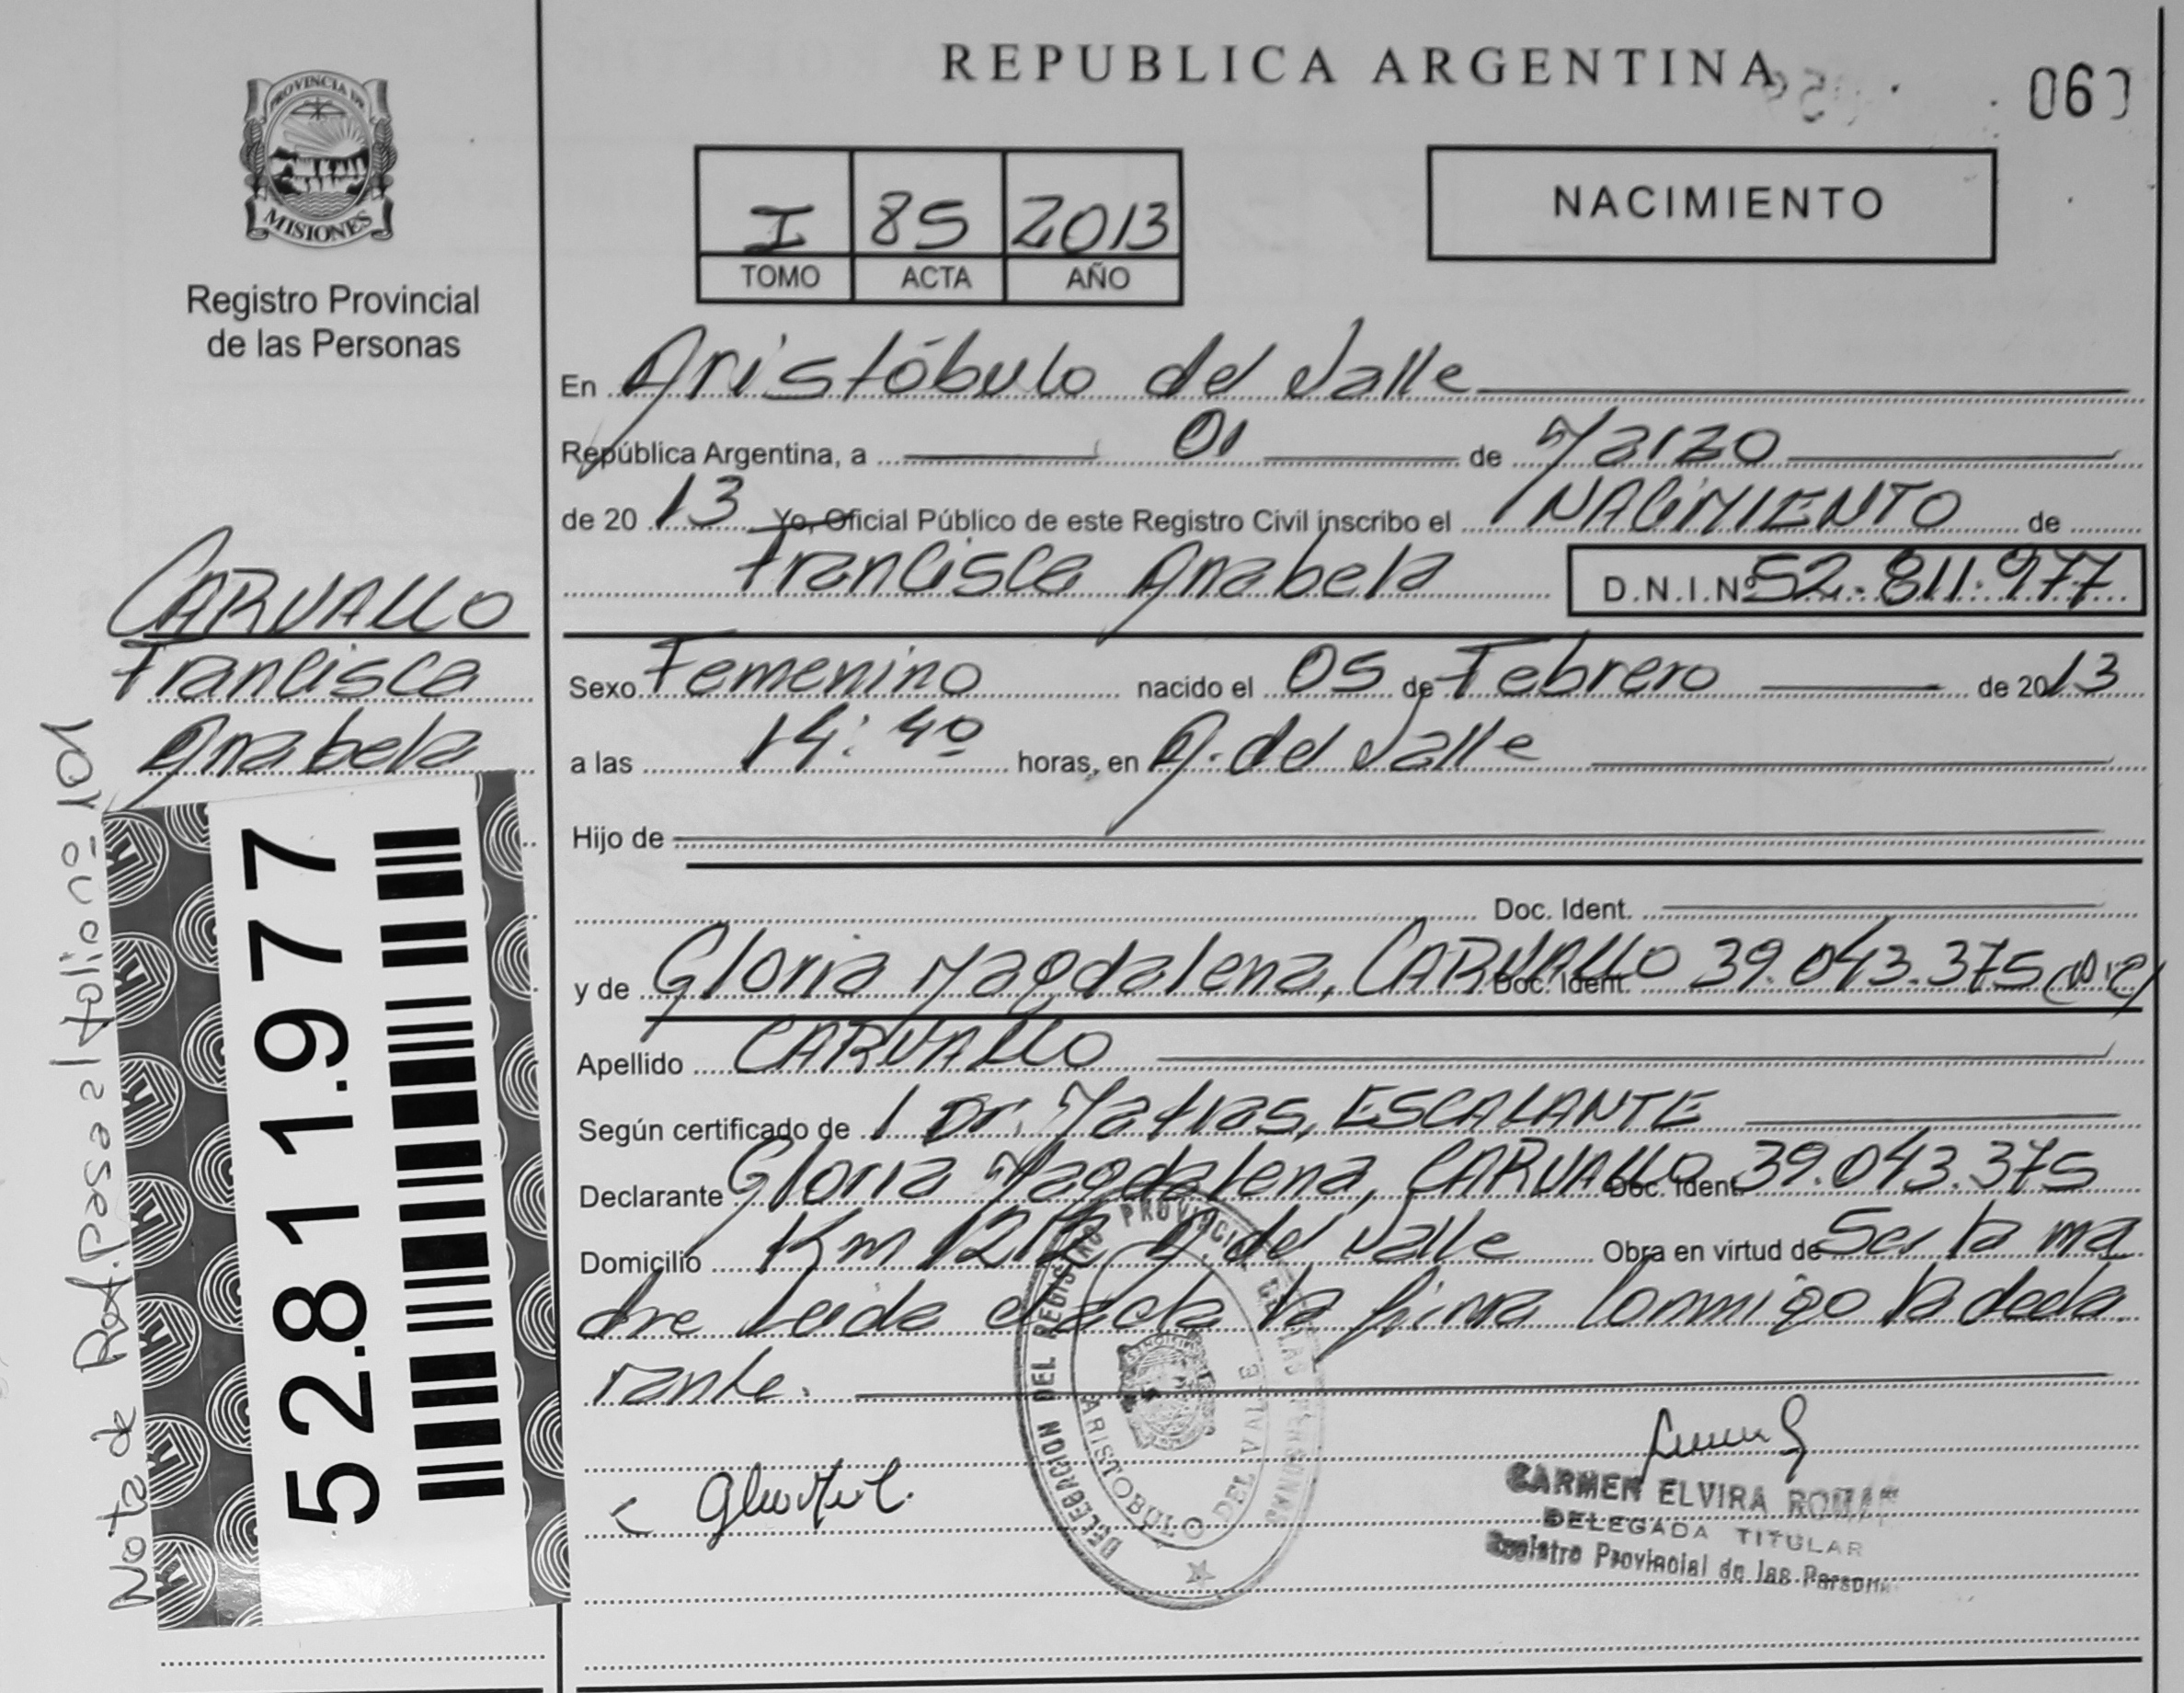 REPUBLICA ARGENTINA
060
PROVINCIA DE
MISIONES
Registro Provincial
de las Personas
I 85 2013
TOMO ACTA AÑO
NACIMIENTO
En Aristóbulo del Valle
República Argentina, a 01 de Marzo
de 20 13 Yo, Oficial Público de este Registro Civil inscribo el NACIMIENTO de
Francisca Anabela D.N.I.Nº 52.811.977
CARVALLO
Francisca
Anabela
Sexo Femenino nacido el 05 de Febrero de 2013
a las 14:40 horas, en A. del Valle
Hijo de
Doc. Ident.
y de Gloria Magdalena, CARVALLO Doc. Ident. 39.043.375
Apellido CARVALLO
Según certificado de Dr. Matias, ESCALANTE
Declarante Gloria Magdalena, CARVALLO Doc. Ident. 39.043.375
Domicilio Km 1212 A. del Valle Obra en virtud de Ser la ma
dre Leida el acta la firma Conmigo la decla
rante.
52.811.977
Nota de Ref. Pasa al folio nº 101
DELEGACION DEL REGISTRO PROVINCIAL DE LAS PERSONAS
ARISTOBULO DEL VALLE
CARMEN ELVIRA ROMAN
DELEGADA TITULAR
Registro Provincial de las Personas